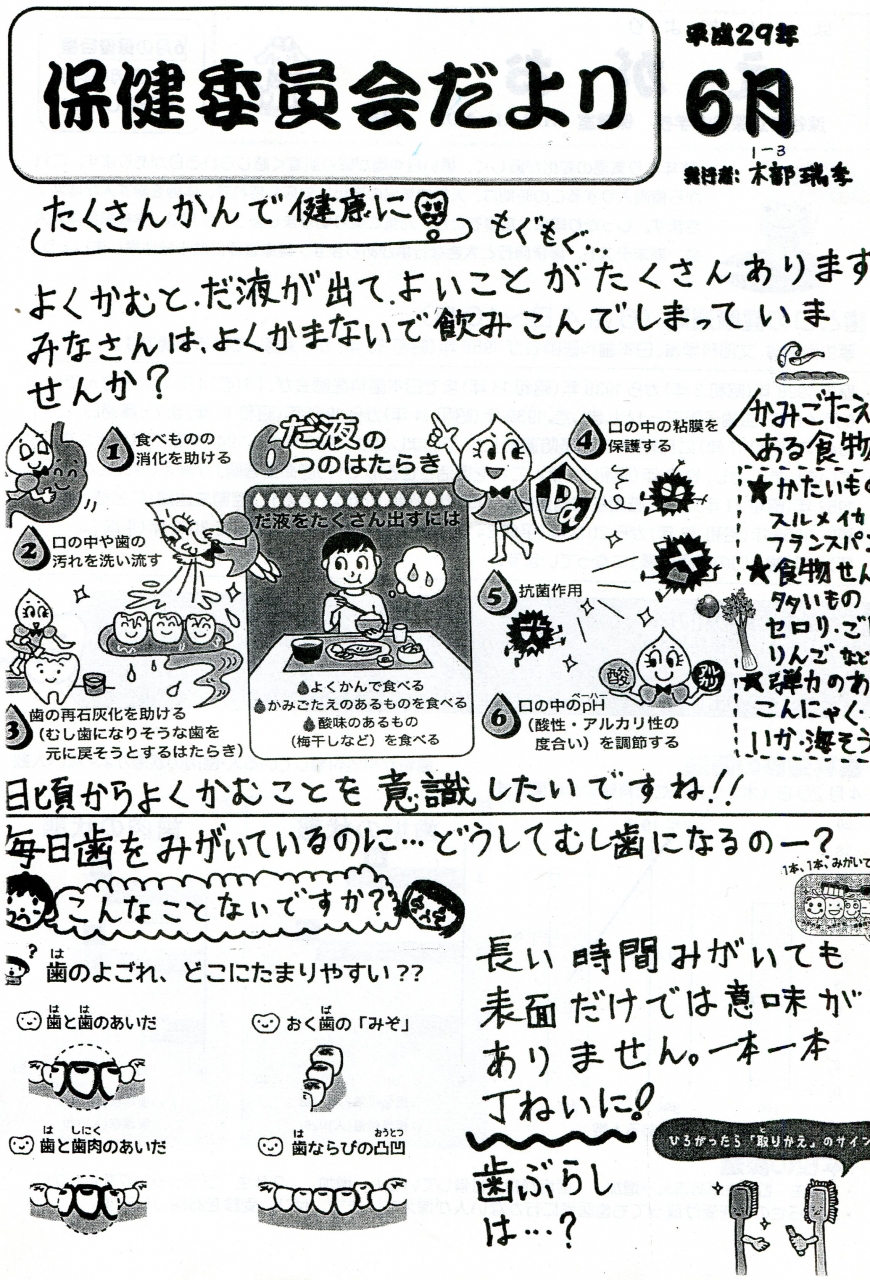 保健委員会だより
平成29年
6月
1-3
発行者: 木部 瑞季
たくさんかんで健康に
もぐもぐ…
よくかむと、だ液が出て、よいことがたくさんあります
みなさんは、よくかまないで飲みこんでしまっていま
せんか?
1 食べものの
消化を助ける
2 口の中や歯の
汚れを洗い流す
3 歯の再石灰化を助ける
(むし歯になりそうな歯を
元に戻そうとするはたらき)
だ液の
6つのはたらき
だ液をたくさん出すには
よくかんで食べる
かみごたえのあるものを食べる
酸味のあるもの
(梅干しなど)を食べる
4 口の中の粘膜を
保護する
5 抗菌作用
酸
6 口の中のpH
ペーハー
(酸性・アルカリ性の
度合い)を調節する
かみごたえ
ある食物
★かたいもの
スルメイカ
フランスパン
★食物せん
タタいもの
セロリ・ご
りんごなど
★弾力のあ
こんにゃく・
いか・海そう
日頃からよくかむことを意識したいですね!!
毎日歯をみがいているのに…どうしてむし歯になるのー?
こんなことないですか?
1本、1本みがいて
?
は
歯のよごれ、どこにたまりやすい??
は は
歯と歯のあいだ
ば
おく歯の「みぞ」
は しにく
歯と歯肉のあいだ
は おうとつ
歯ならびの凸凹
長い時間みがいても
表面だけでは意味が
ありません。一本一本
丁ねいに!
歯ぶらし
は…?
と
ひろがったら「取りかえ」のサイン